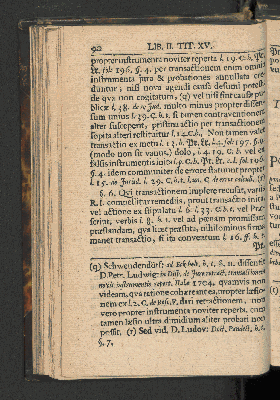 90 LIB. II. TIT. XV.
propter instrumenta noviter reperta l. 19. C. h. Pr.
&. fol. 196. §. 4. per transactionem enim omnia
instrumenta jura & probationes annullata cre-
duntur; nisi nova agendi causa desumi potest
de qua non cogitatum, (q) vel nisi sint causæ pu-
blicæ l. 38. de re jud. multo minus propter dissen-
sum unius l. 39. C. h. t. si tamen contraventionem
alter susceperit, præstita actio per transactionem
sopita alteri restituitur l. 14. C. h. Non tamen valet
transactio ex metu l. 13. h. Pr. &. 4. fol. 197. §. 6
(modo non sit vanus) dolo, l. 19. C. h. vel ex
falsis instrumentis inita l. p. C. h. Pr. &. c. l. fol. 196.
§. 4. idem communiter de errore statuunt propter
l. 15. de Jurisd. l. 29. C. h. t. l. un. C. de error. calculi. (r)
§. 6. Qui transactionem implere recusat, variis
R. J. compellitur remediis, prout transactio inita
vel actione ex stipulatu l. 6. l. 33. C. h. t. vel Præ-
script. verbis l. §. 8. t. vel ad pœnam promissam
præstandam, qua licet præstita, nihilominus firma
manet transactio, si ita conventum l. 16. ff. h. t.
Pr.
(q) Schwendendörff: ad Eckholt. h. t. §. 11. dissentit
D. Petr. Ludwig: in Diss. de Jure retract. transactionem
novis instrumentis repert. Halæ 1704. quamvis non
videam, qua ratione cohæreat ea, propter læsio-
nem ex l. 2. C. de Resc. V. dari retractionem, non
vero propter instrumenta noviter reperta, cum
tamen læsio ultra dimidium aliter probari non
possit. (r) Sed vid. D. Ludov: Doct. Pandect. h. t.
§. 7.